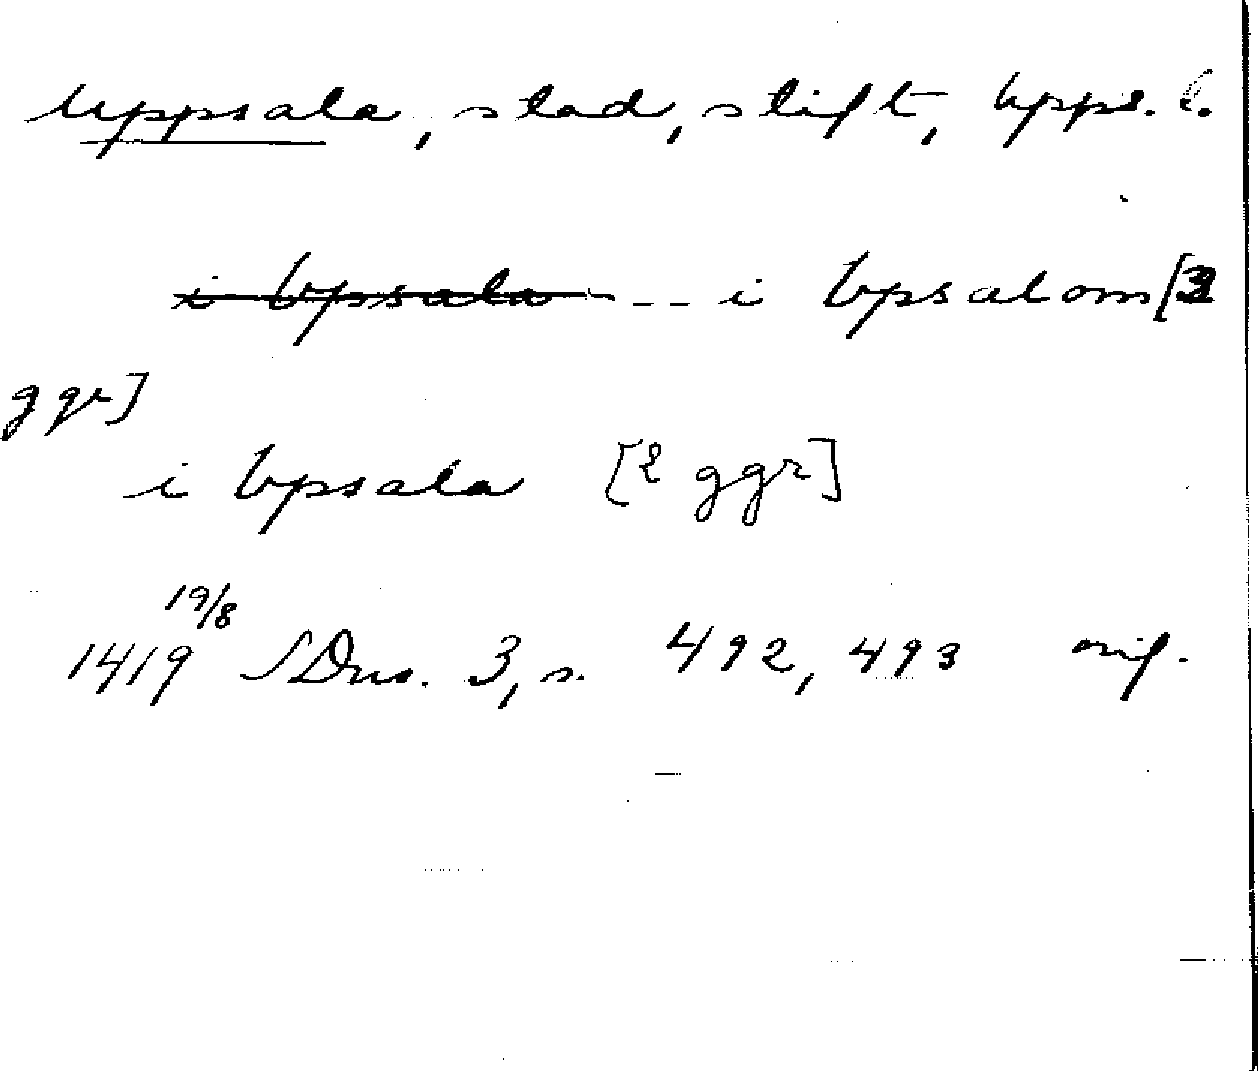 Uppsala, stad, stift, Upps. l.
i Vpsala -- i Vpsalom [3
ggr]
i Vpsala [2 ggr]
1419 19/8 SDns. 3, s. 492, 493 orig.